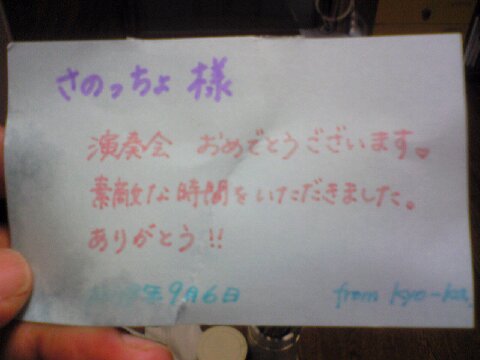 さのっちょ 様
演奏会 おめでとうございます。
素敵な時間をいただきました。
ありがとう!!
年9月6日 from kyo-ka